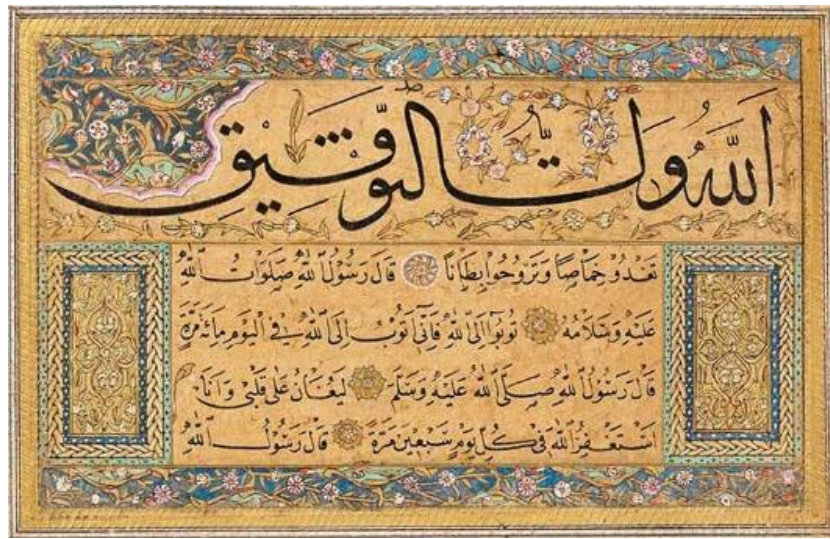 اَللّٰهُ وَلِيُّ التَّوْفِيق
تَغْدُو خِمَاصًا وَتَرُوحُوا بِطَانًا قَالَ رَسُولُ اللّٰهِ صَلَوَاتُ اللّٰهِ
عَلَيْهِ وَسَلَامُهُ تُوبُوا اِلَى اللّٰهِ فَاِنّٰى اَتُوبُ اِلَى اللّٰهِ فِى الْيَوْمِ مِائَةَ مَرَّةٍ
قَالَ رَسُولُ اللّٰهِ صَلَّى اللّٰهُ عَلَيْهِ وَسَلَّمَ لَيُغَانُ عَلٰى قَلْبِى وَاَنَا
اَسْتَغْفِرُ اللّٰهَ فِى كُلِّ يَوْمٍ سَبْعِينَ مَرَّةً قَالَ رَسُولُ اللّٰهِ